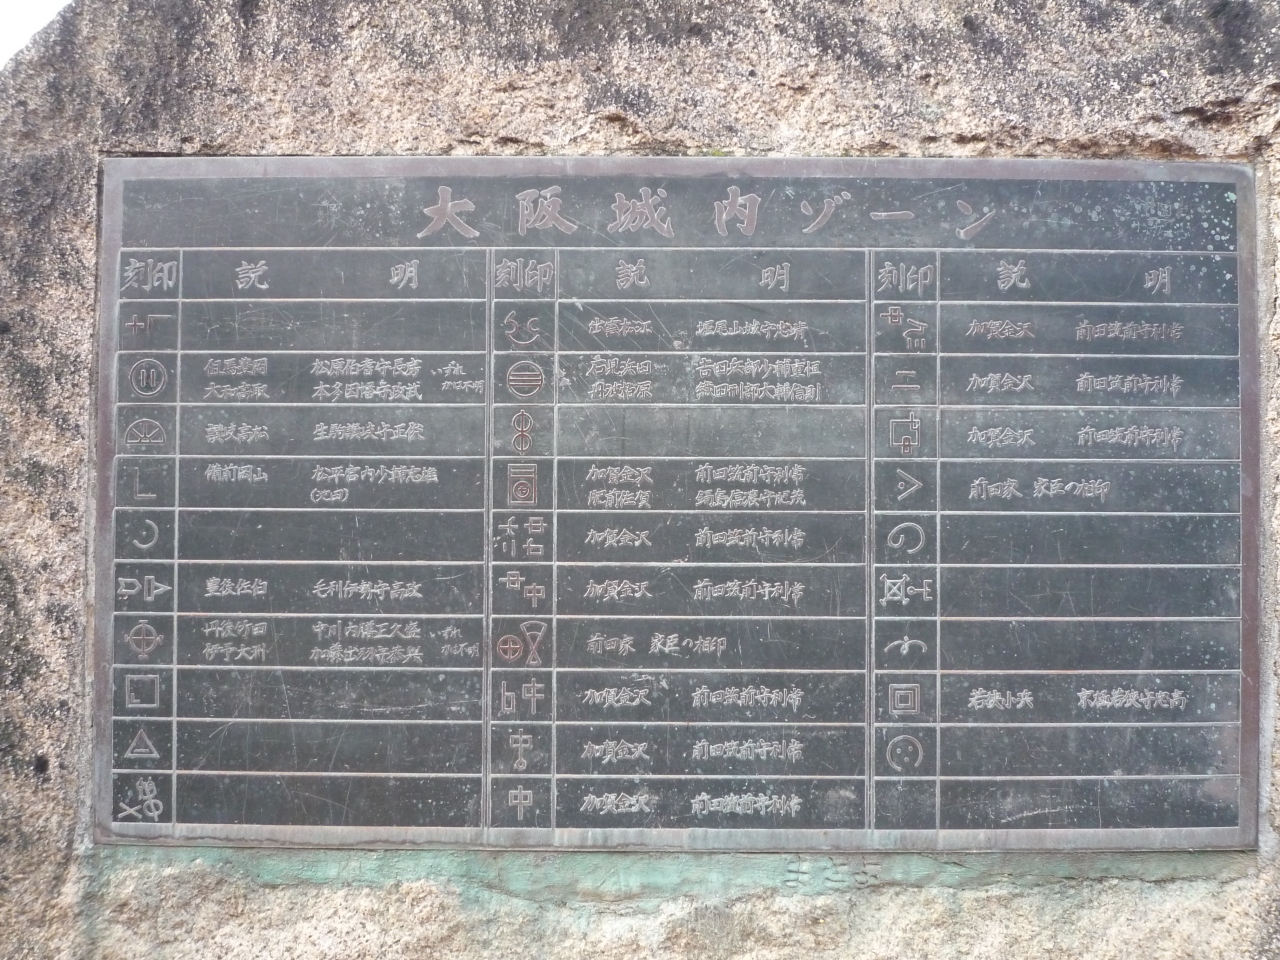 大阪城内ゾーン
刻印 説明 刻印 説明 刻印 説明
但馬豊岡 松原伯耆守長房 いずれ
大和高取 本多因幡守政武 かは不明
讃岐高松 生駒讃岐守正俊
備前岡山 松平宮内少輔忠雄
(池田)
豊後佐伯 毛利伊勢守高政
丹後竹田 中川内膳正久盛 いずれ
伊予大洲 加藤出羽守泰興 かは不明
出雲松江 堀尾山城守忠晴
石見浜田 古田兵部少輔重恒
丹波柏原 織田刑部大輔信則
加賀金沢 前田筑前守利常
肥前佐賀 鍋島信濃守忠茂
加賀金沢 前田筑前守利常
加賀金沢 前田筑前守利常
前田家 家臣の相印
加賀金沢 前田筑前守利常
加賀金沢 前田筑前守利常
加賀金沢 前田筑前守利常
加賀金沢 前田筑前守利常
加賀金沢 前田筑前守利常
加賀金沢 前田筑前守利常
前田家 家臣の相印
若狭小兵 京極若狭守忠高